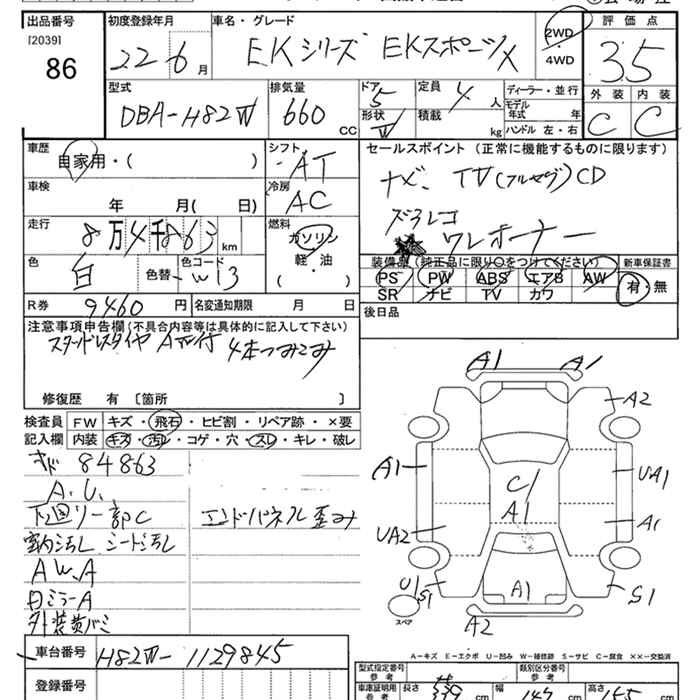 出品番号 初度登録年月 車名・グレード 2WD 評価点
[2039] ・
86 22 6月 EKシリーズ EKスポーツX 4WD 3.5
型式 排気量 ドア 定員 ディーラー・並行 外装 内装
DBA-H82W 660 CC 5 4人 モデル年式 年 C C
形状 積載 kg ハンドル 左・右
W
車歴 シフト セールスポイント(正常に機能するものに限ります)
自家用・( ) AT
車検 冷房 ナビ、TV(フルセグ)CD
年 月( 日) AC
走行 燃料 ドラレコ
8万4千863km ガソリン ワンオーナー
色 色コード 軽・油 装備品(純正品に限り○をつけてください) 新車保証書
白 色替 W13 ( ) PS PW ABS エアB AW 有・無
SR ナビ TV カワ
R券 9460円 名変通知期限 月 日 後日品
注意事項申告欄(不具合内容等は具体的に記入して下さい)
スタッドレスタイヤ A 付 4本つみこみ
修復歴 有〔箇所 〕
検査員 FW キズ・飛石・ヒビ割・リペア跡・×要
記入欄 内装 キズ・汚レ・コゲ・穴・スレ・キレ・破レ
84863
A.U.
下廻り一部C エンドパネル歪み
室内汚レ シート汚レ
AW.A
ミラーA
外装黄バミ
車台番号 H82W-1129845
登録番号
A1 A1
A2
A1 UA1
C1
A1
UA2 A1
A1
U1 S1 S1
スペア A2
A-キズ E-エクボ U-凹み W-補修跡 S-サビ C-腐食 ××-交換済
型式指定番号 類別区分番号
参考 参考
車庫証明用 長さ 339cm 幅 147cm 高さ 155cm
参考